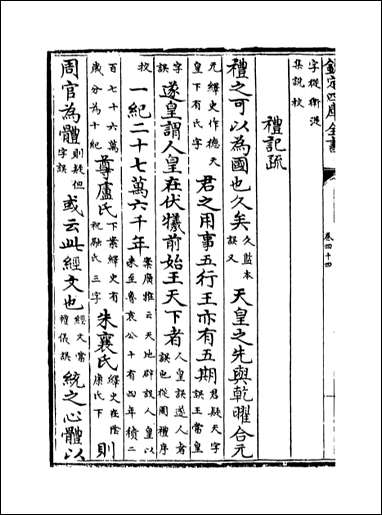 欽定四庫全書
卷四十四
字從衛湜
集說校
禮記疏
禮之可以為國也久矣久監本誤又天皇之先與乾曜合元
元繹史作德天皇下有氏字君之用事五行王亦有五期君疑天字誤王當皇
字誤遂皇謂人皇在伏犧前始王天下者人皇誤遂人者誤也從周禮序
校一紀二十七萬六千年案廣雅云天地辟設人皇以來至魯哀公十有四年積二
百七十六萬歲分為十紀尊盧氏下案繹史有祝融氏三字朱襄氏繹史在陰康氏下則
周官為體則疑但字誤或云此經文也經文當禮儀誤統之心體以